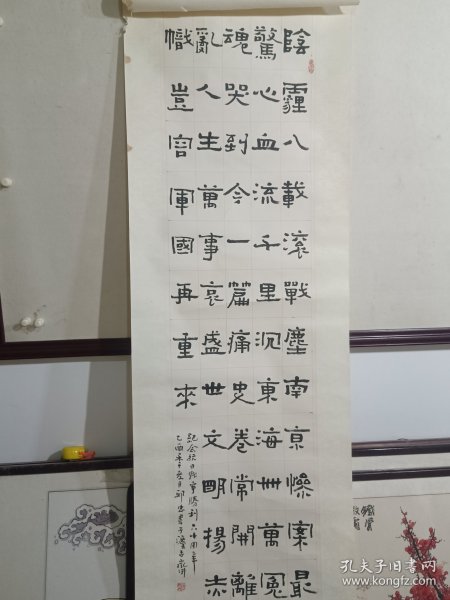 陰霾八載滾戰塵南京慘案最
驚心血流千里沉東海卅萬冤
魂哭到今一篇痛史卷常開離
亂人生萬事哀盛世文明揚赤
幟豈容軍國再重來
記念抗日战爭勝利六十周年
乙酉年
孔夫子旧书网
www.kongfz.com